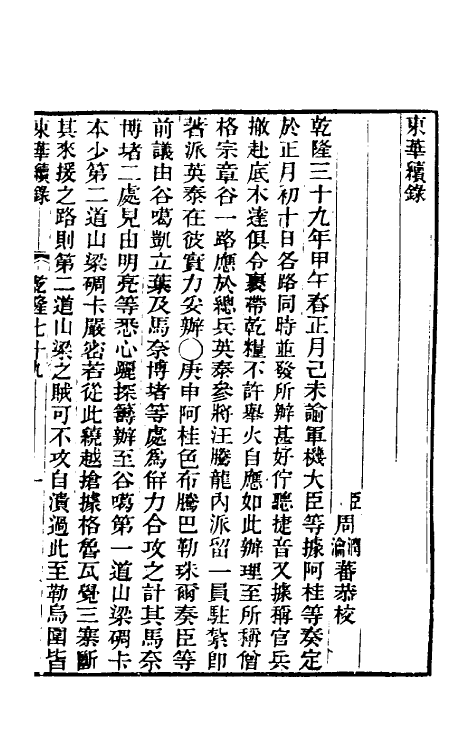 東華續錄
臣周潤蕃瀹蕃恭校
乾隆三十九年甲午春正月己未諭軍機大臣等據阿桂等奏定
於正月初十日各路同時並發所辦甚好佇聽捷音又據稱官兵
撤赴底木達俱令裹帶乾糧不許舉火自應如此辦理至所稱僧
格宗章谷一路應於總兵英泰參將汪騰龍內派留一員駐紮即
著派英泰在彼實力妥辦○庚申阿桂色布騰巴勒珠爾奏臣等
前議由谷噶凱立葉及馬奈博堵等處為倂力合攻之計其馬奈
博堵二處見由明亮等悉心躧探籌辦至谷噶第一道山梁碉卡
本少第二道山梁碉卡嚴密若從此繞越搶據格魯瓦覺三寨斷
其來援之路則第二道山梁之賊可不攻自潰過此至勒烏圍皆
東華續錄 乾隆七十九 一